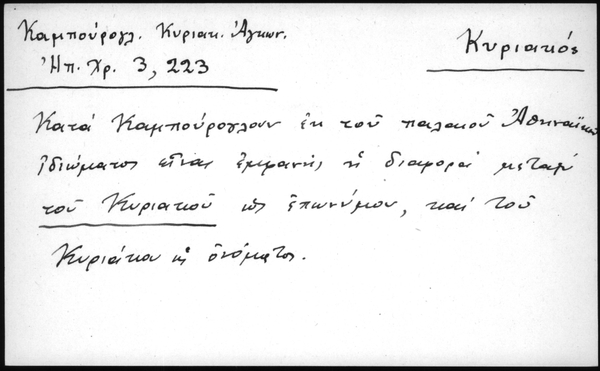 Καμπούρογλ. Κυριακ. Ἀγκων.
Κυριακός
Ἠπ. Χρ. 3, 223
Κατά Καμπούρογλουν ἐκ τοῦ παλαιοῦ Ἀθηναϊκοῦ
ἰδιώματος εἶναι ἐμφανής ἡ διαφορά μεταξύ
τοῦ Κυριακοῦ ὡς ἐπωνύμου, καί τοῦ
Κυριάκου ὡς ὀνόματος.